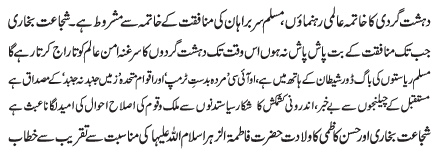 دہشت گردی کا خاتمہ عالمی رہنماؤں، مسلم سربراہان کی منافقت کے خاتمہ سے مشروط ہے۔ شجاعت بخاری
جب تک منافقت کے بت پاش پاش نہ ہوں اس وقت تک دہشت گردوں کا سرغنہ امن عالم کو تاراج کرتا رہے گا
مسلم ریاستوں کی باگ ڈور شیطان کے ہاتھ میں ہے، او آئی سی ’مردہ بدست ٹرمپ‘ اور اقوام متحدہ ’زمیں جنبد نہ جنبد‘ کے مصداق ہے
مستقبل کے چیلنجوں سے بے خبر، اندرونی کشمکش کا شکار سیاستدانوں سے ملک و قوم کی اصلاح احوال کی امید لگانا عبث ہے
شجاعت بخاری اور حسن کاظمی کا ولادت حضرت فاطمۃ الزہرا سلام اللہ علیہا کی مناسبت سے تقریب سے خطاب